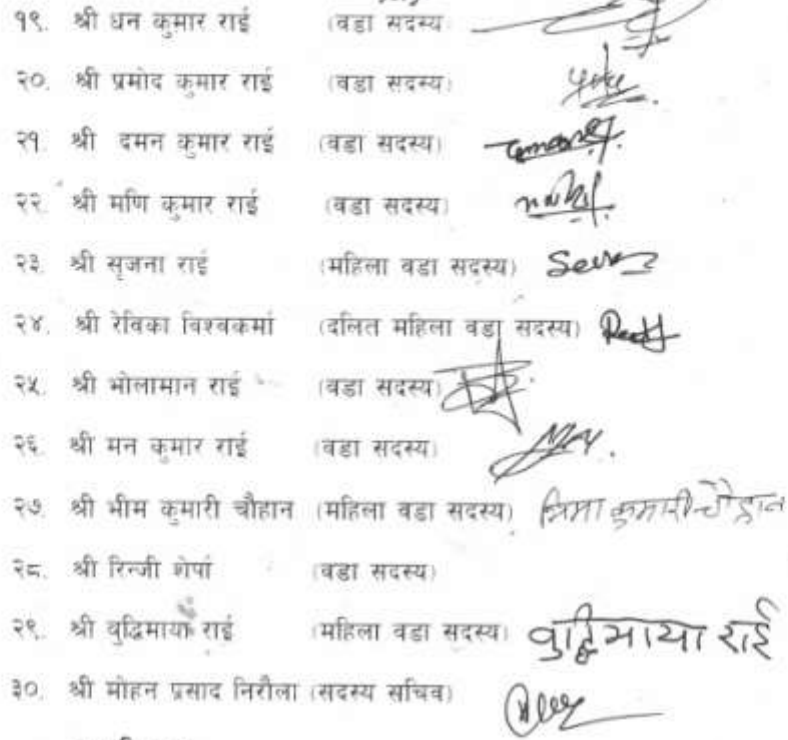 १९. श्री धन कुमार राई (वडा सदस्य)
२०. श्री प्रमोद कुमार राई (वडा सदस्य)
२१. श्री दमन कुमार राई (वडा सदस्य)
२२. श्री मणि कुमार राई (वडा सदस्य)
२३. श्री सृजना राई (महिला वडा सदस्य)
२४. श्री रेविका विश्वकर्मा (दलित महिला वडा सदस्य)
२५. श्री भोलामान राई (वडा सदस्य)
२६. श्री मन कुमार राई (वडा सदस्य)
२७. श्री भीम कुमारी चौहान (महिला वडा सदस्य) भिमा कुमारी चौहान
२८. श्री रिन्जी शेर्पा (वडा सदस्य)
२९. श्री वुद्धिमाया राई (महिला वडा सदस्य) वुद्धिमाया राई
३०. श्री मोहन प्रसाद निरौला (सदस्य सचिव)